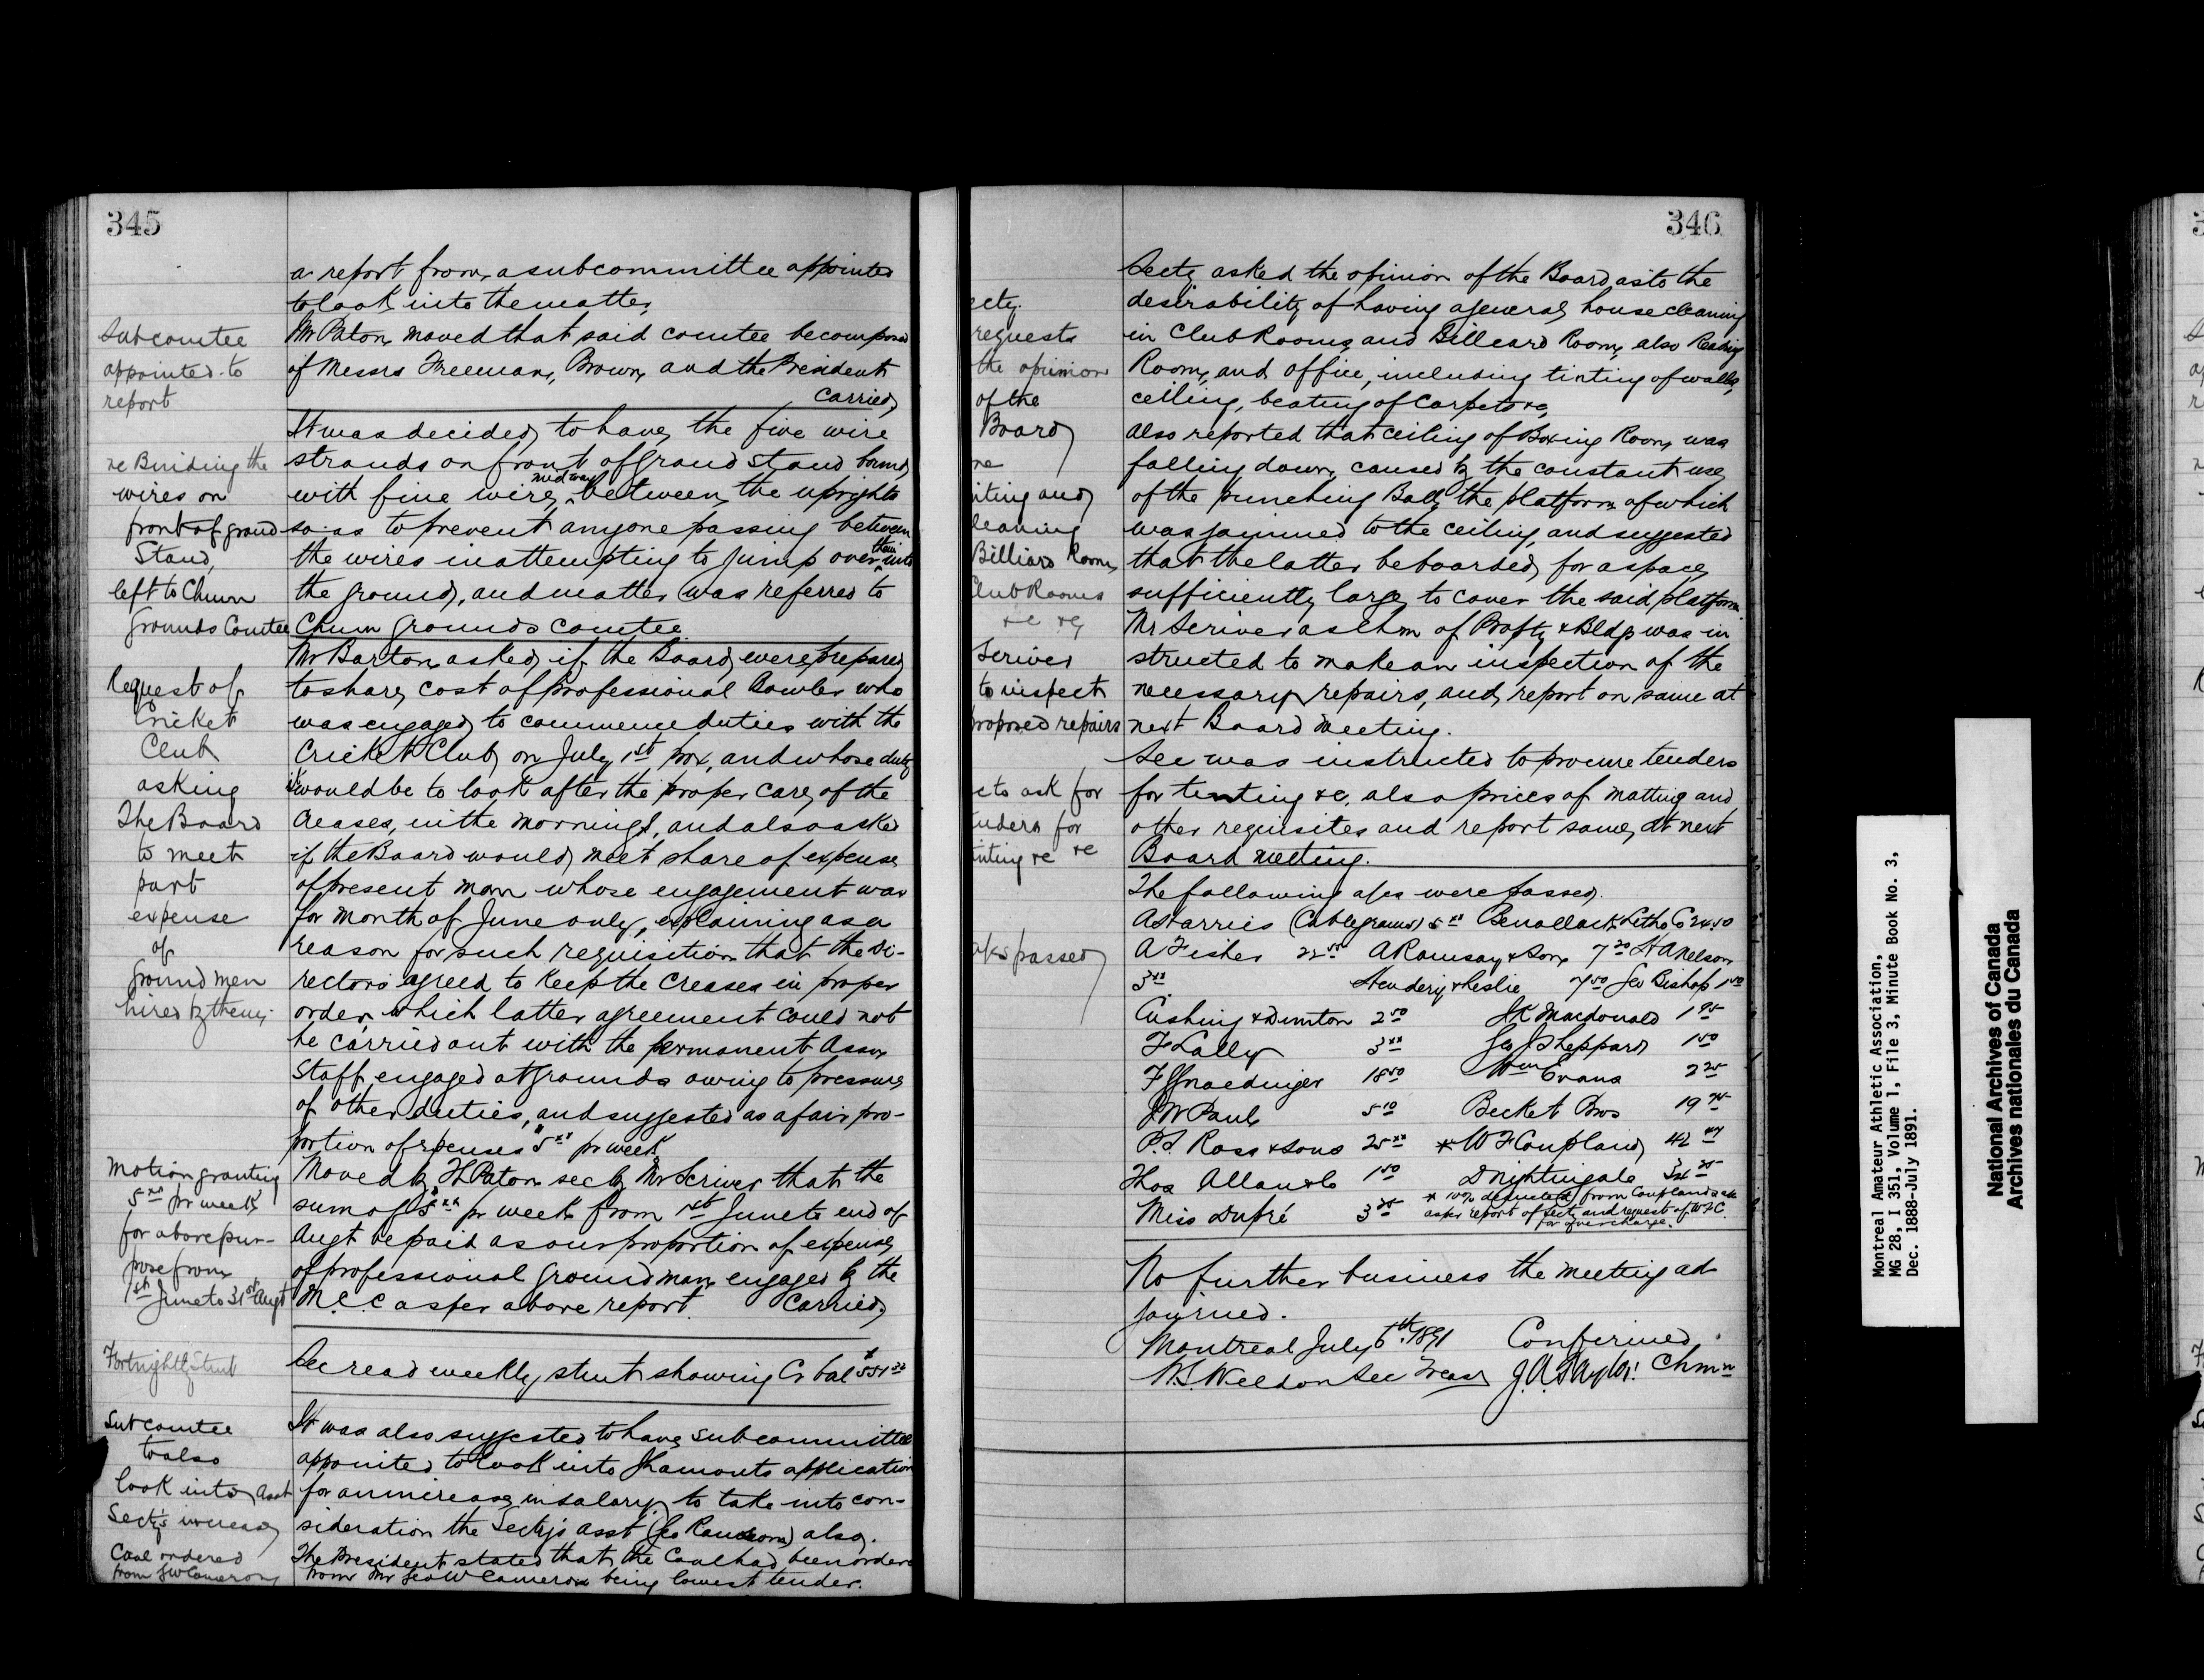 345
a report from a subcommittee appointed
to look into the matter,
Subcomtee
appointed to
report
Mr Paton moved that said comtee be composed
of Messrs Freeman, Brown, and the President
Carried,
re Binding the
wires on
front of grand
Stand,
left to Chmn
Grounds Comtee
It was decided, to have, the five wire
strands on front of Grand Stand bound,
with fine wire, midway between, the uprights
so as to prevent anyone passing between
the wires in attempting to jump over them into
the ground, and matter was referred to
Chmn Grounds Comtee
Request of
Cricket
Club
asking
The Board
to meet
part
expense
of
Ground men
hired by them
Mr Barton, asked, if the Board, were, prepared
to share, cost of professional Bowler who
was engaged, to commence duties with the
Cricket Club, on July 1st prox, and whose duty
it would be to look after the proper care, of the
Creases, in the mornings, and also asked
if the Board would, meet share of expense
of present man whose engagement was
for month of June only, explaining as a
reason for such requisition that the Di-
rectors agreed to keep the Creases in proper
order, which latter agreement could not
be carried out with the permanent Assn
Staff, engaged at Grounds owing to pressure
of other duties, and suggested as a fair pro-
portion of expenses $5xx pr week
Motion granting
5xx pr week
for above pur-
pose from
1st June to 31st Augt
Moved by H Paton sec by Mr Scriver that the
sum of $5xx pr week from 1st June to end of
Augt be paid as our proportion of expense,
of professional Ground man, engaged by the
M.C.C as per above report. Carried,
Fortnightly Stmt
Sec read weekly stmt showing Cr bal $551
Subcomtee
to also
look into Asst
Secty's increase
It was also suggested to have subcommittee
appointed to look into J Lamonts application
for an increase, in salary, to take into con-
sideration the Secty's asst (Geo Ransom) also.
Coal ordered
from GW Cameron
The President stated that the Coal had been ordered
from Mr Geo W Cameron being lowest tender.
346
ecty.
requests
the opinion
of the
Board,
re
nting and
leaning
Billiard Room,
Club Rooms
&c &c
Scriver
to inspect
proposed repairs
Secty asked the opinion of the Board as to the
desirability of having a general house cleaning
in Club Rooms, and Billiard Room, also Reading
Room, and office, including tinting of walls,
ceiling, beating of Carpets &c,
Also reported that ceiling of Boxing Room, was
falling down, caused by the constant use,
of the punching Ball, the platform of which
was jammed to the ceiling, and suggested
that the latter be boarded, for a space,
sufficiently large, to cover the said, platform
Mr Scriver as Chm of Propty & Bldg was in
structed to make an inspection of the
necessary repairs, and, report on same at
next Board Meeting.
c to ask for
enders for
inting &c &c
Sec was instructed to procure tenders
for tinting &c, also prices of Matting and
other requisites and report same, at next
Board meeting.
a/cs passed,
The following a/cs were passed.
A Harris (Cablegrams) 5xx Benallack Litho Co 24.50
A Fisher 22 A Ramsay & Son 7 20 H A Nelson
3xx Hendery & Leslie 7 50 Geo Bishop 1 50
Cushing & Dunton 2 50 J K Macdonald 1 95
F Lally 3xx Geo J Sheppard 1 50
F Gnaedinger 18 50 Wm Evans 2 25
J W Paul 5 10 Becket Bros 19
P.S. Ross & Sons 25xx * W F Coupland, 42
Thos Allan & Co 1 50 D Nightingale
Miss Dupré 3
* 10% deducted from Couplands a/c
as per report of Secty and request of W F C
for overcharge.
No further business the meeting ad
journed.
Montreal July 6th 1891 Confirmed,
W.S. Weldon Sec Treas J.A. Taylor Chmn
Montreal Amateur Athletic Association,
MG 28, I 351, Volume 1, File 3, Minute Book No. 3,
Dec. 1888-July 1891.
National Archives of Canada
Archives nationales du Canada